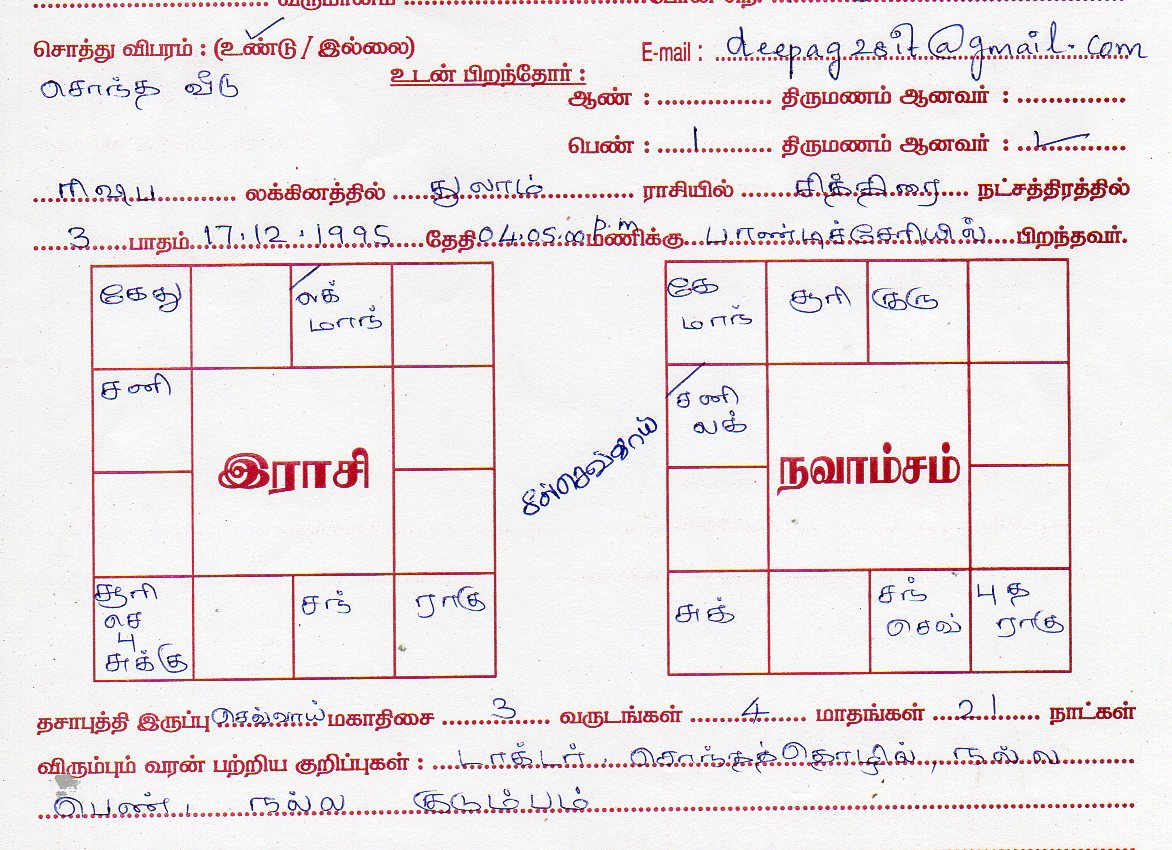 வருமானம் ............
சொத்து விபரம் : (உண்டு / இல்லை)
E-mail : deepag28it@gmail.com
சொந்த வீடு
உடன் பிறந்தோர் :
ஆண் : ............... திருமணம் ஆனவர் : ..............
பெண் : 1 திருமணம் ஆனவர் :
ரிஷப லக்கினத்தில் துலாம் ராசியில் சித்திரை நட்சத்திரத்தில்
3 பாதம் 17.12.1995 தேதி 04.05.00 p.m மணிக்கு பாண்டிச்சேரியில் பிறந்தவர்.
கேது
லக்
மாந்
சனி
இராசி
சூரி
செ
பு
சுக்கு
சந்
ராகு
கே
மாந்
சூரி
குரு
சனி
லக்
நவாம்சம்
சுக்
சந்
செவ்
புத
ராகு
தசாபுத்தி இருப்பு செவ்வாய் மகாதிசை 3 வருடங்கள் 4 மாதங்கள் 21 நாட்கள்
விரும்பும் வரன் பற்றிய குறிப்புகள் : டாக்டர், சொந்தத்தொழில், நல்ல
பெண், நல்ல குடும்பம்